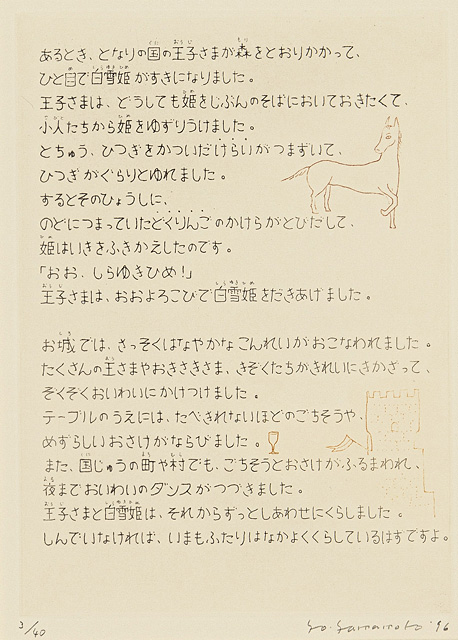 あるとき、となりの国の王子さまが森をとおりかかって、
ひと目で白雪姫がすきになりました。
王子さまは、どうしても姫をじぶんのそばにおいておきたくて、
小人たちから姫をゆずりうけました。
とちゅう、ひつぎをかついだけらいがつまずいて、
ひつぎがぐらりとゆれました。
するとそのひょうしに、
のどにつまっていたどくりんごのかけらがとびだして、
姫はいきをふきかえしたのです。
「おお、しらゆきひめ!」
王子さまは、おおよろこびで白雪姫をだきあげました。
お城では、さっそくはなやかなこんれいがおこなわれました。
たくさんの王さまやおきさきさま、きぞくたちがきれいにきかざって、
ぞくぞくおいわいにかけつけました。
テーブルのうえには、たべきれないほどのごちそうや、
めずらしいおさけがならびました。
また、国じゅうの町や村でも、ごちそうとおさけがふるまわれ、
夜までおいわいのダンスがつづきました。
王子さまと白雪姫は、それからずっとしあわせにくらしました。
しんでいなければ、いまもふたりはなかよくくらしているはずですよ。
3/40
Yo. Yamamoto '96